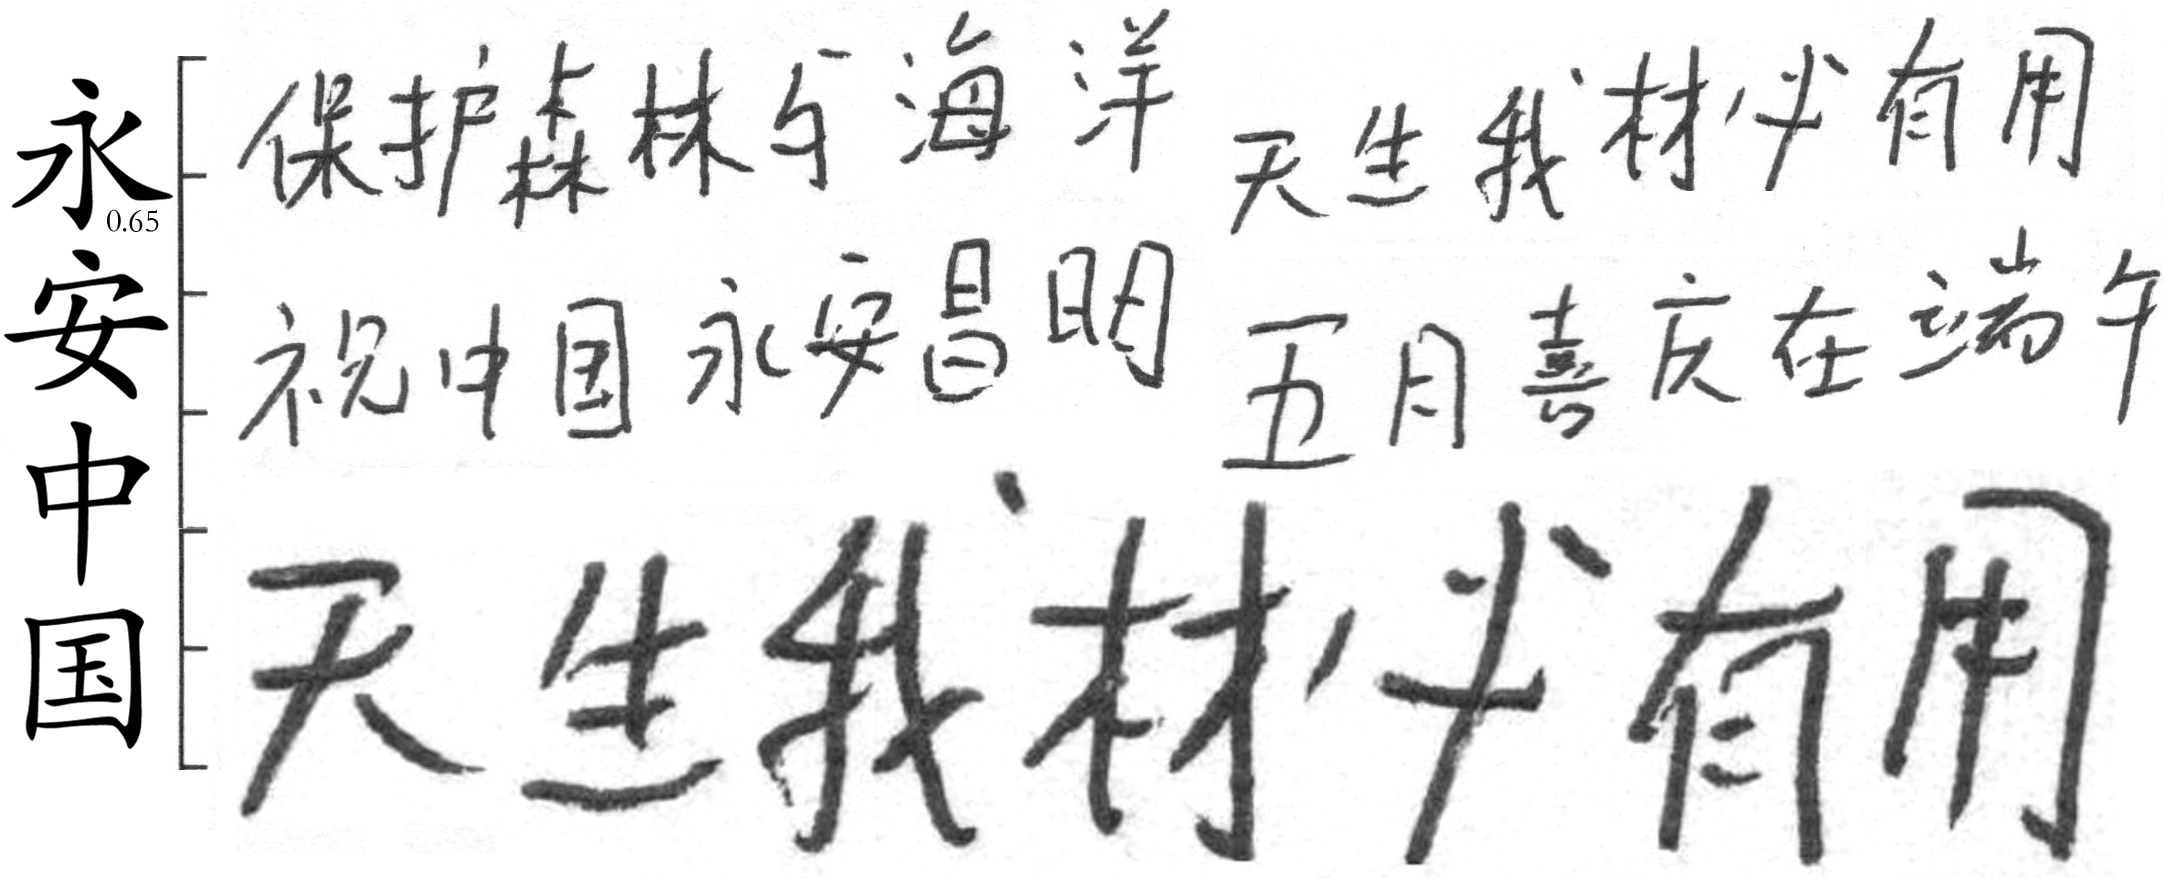 永安中国
0.65
保护森林与海洋
天生我材必有用
祝中国永安昌明
五月喜庆在端午
天生我材必有用